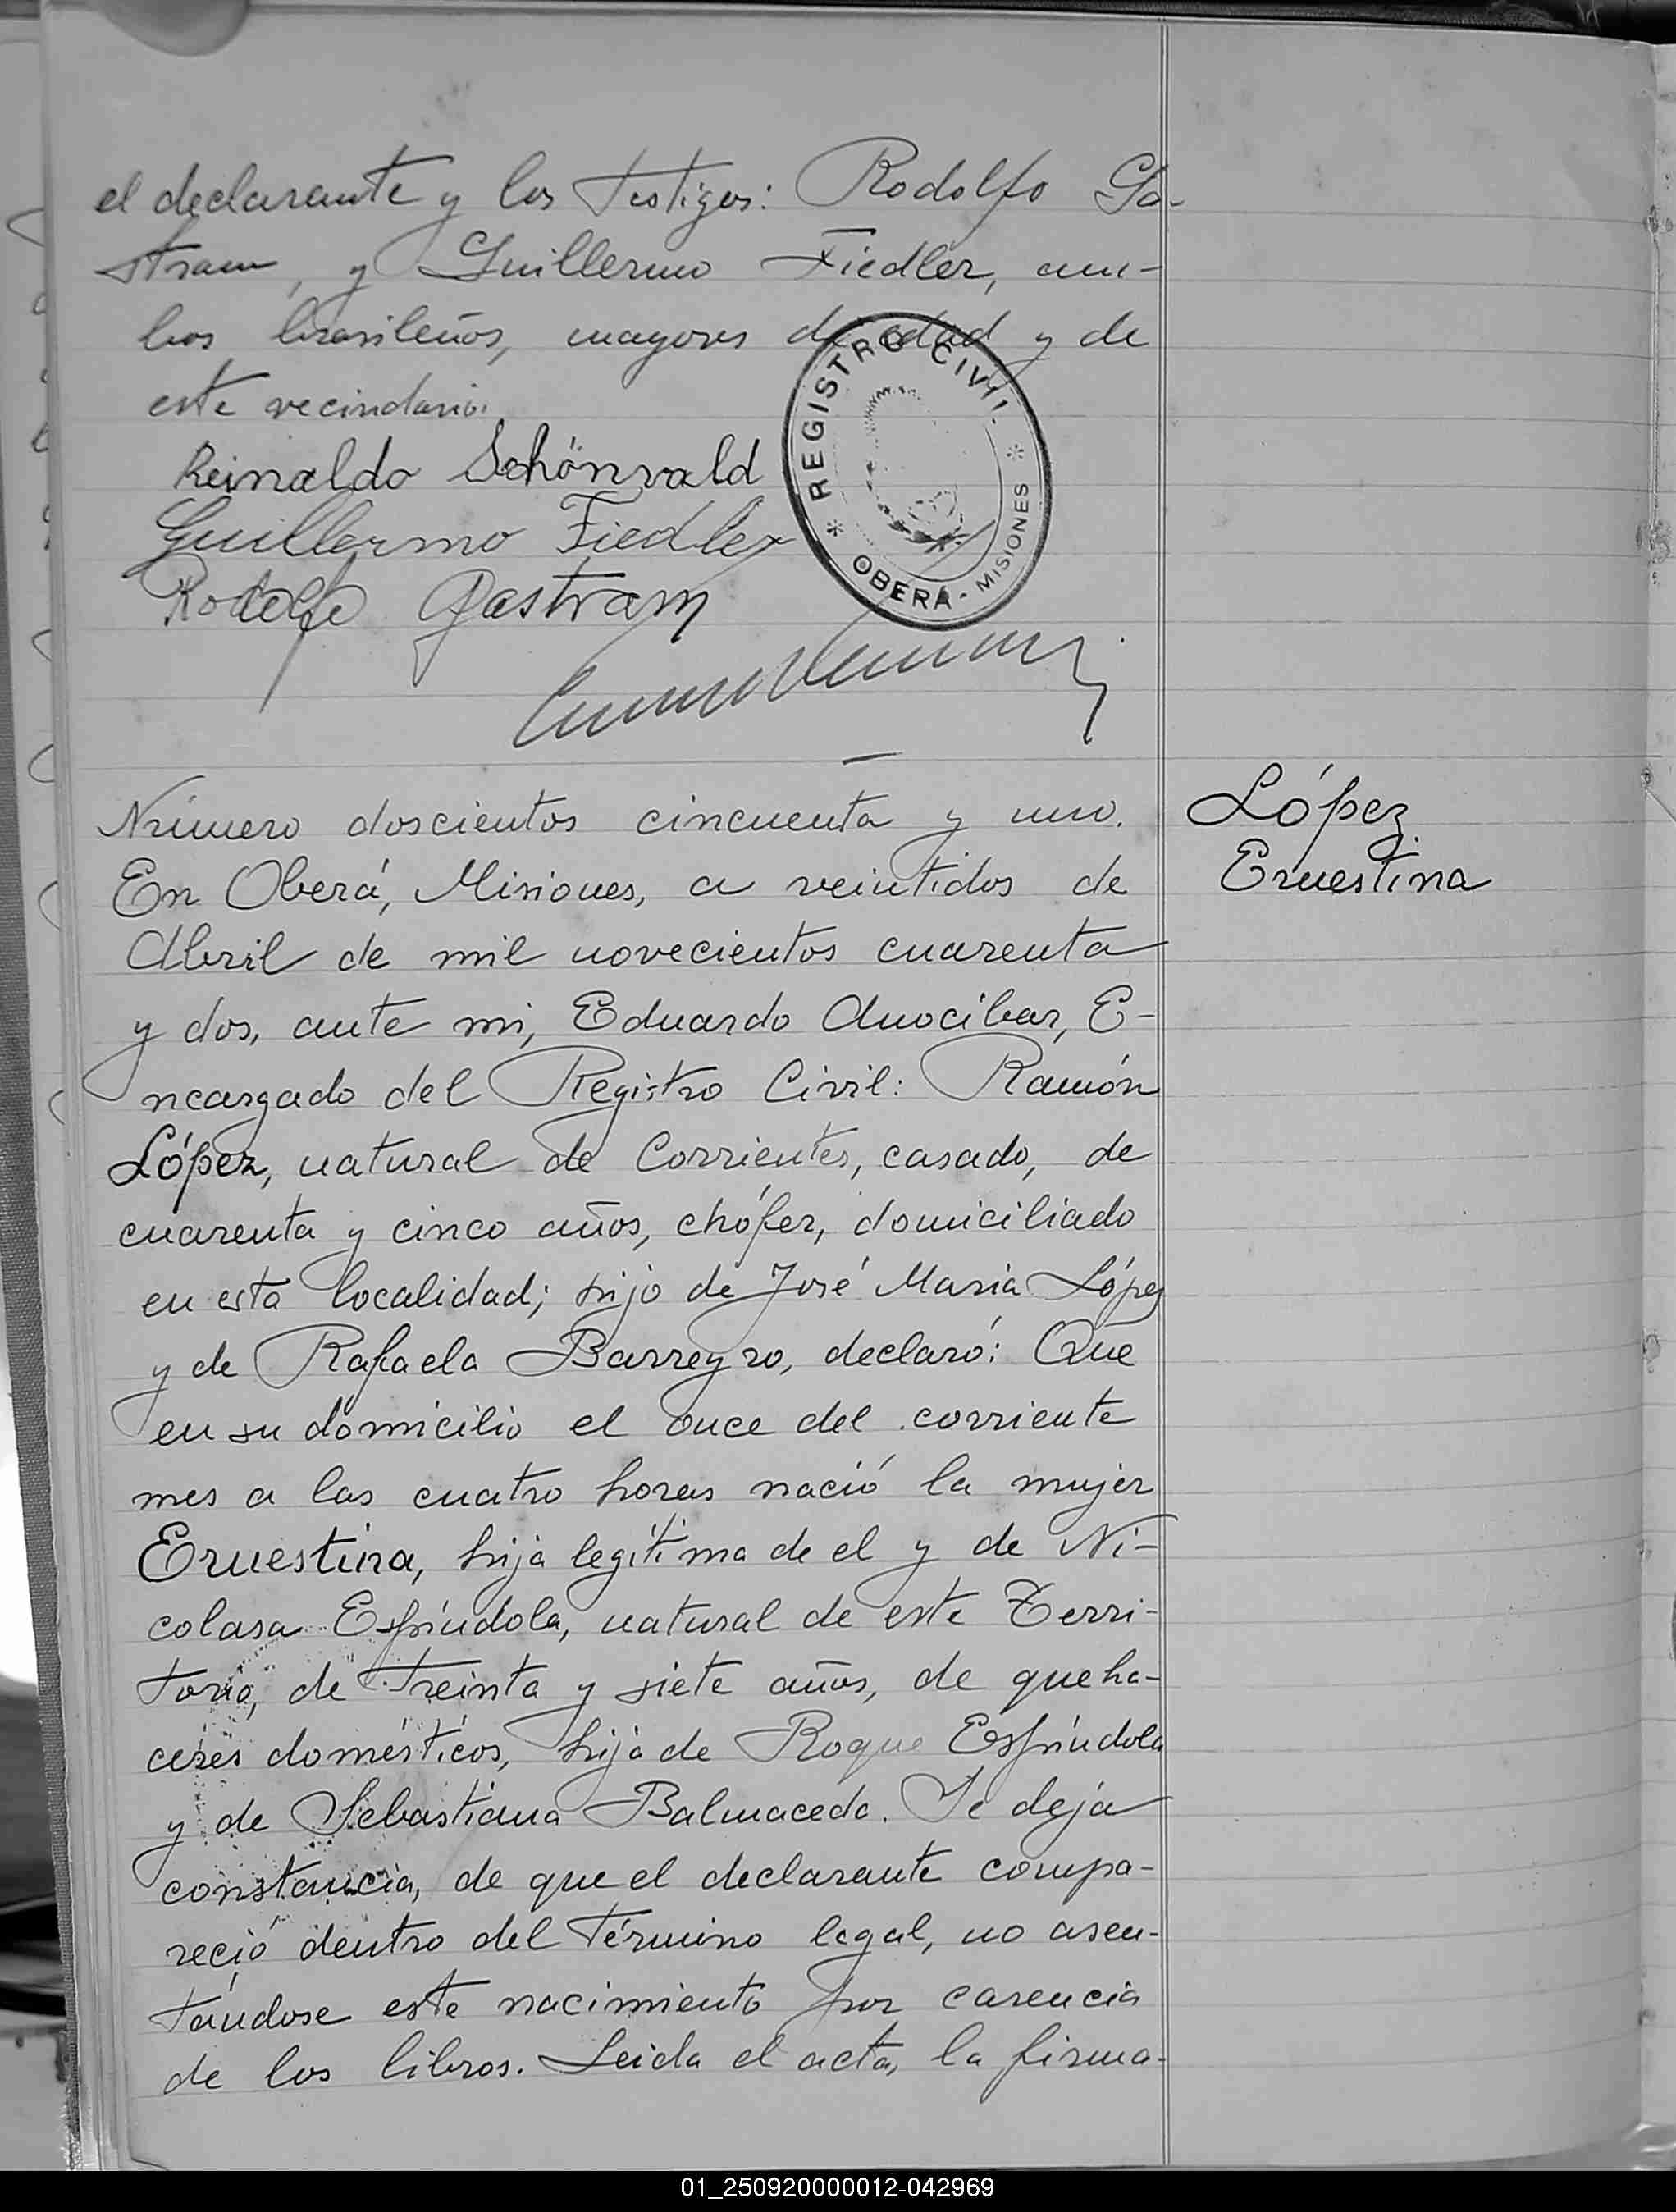 el declarante y los testigos: Rodolfo Ga-
stram, y Guillermo Fiedler, am-
bos brasileños, mayores de edad y de
este vecindario.
Reinaldo Schönvald
Guillermo Fiedler
Rodolfo Gastram
* REGISTRO CIVIL *
OBERÁ - MISIONES
Número doscientos cincuenta y uno.
López
En Oberá, Misiones, a veintidos de
Ernestina
Abril de mil novecientos cuarenta
y dos, ante mi, Eduardo Anocibar, E-
ncargado del Registro Civil: Ramón
López, natural de Corrientes, casado, de
cuarenta y cinco años, chófer, domiciliado
en esta localidad; hijo de José Maria López
y de Rafaela Barreyro, declaró: Que
en su domicilio el once del corriente
mes a las cuatro horas nació la mujer
Ernestina, hija legítima de el y de Ni-
colasa Espíndola, natural de este Terri-
torio, de treinta y siete años, de queha-
ceres domésticos, hija de Roque Espíndola
y de Sebastiana Balmaceda. Se deja
constancia, de que el declarante compa-
reció dentro del término legal, no asen-
tándose este nacimiento por carencia
de los libros. Leida el acta, la firma-
01_250920000012-042969